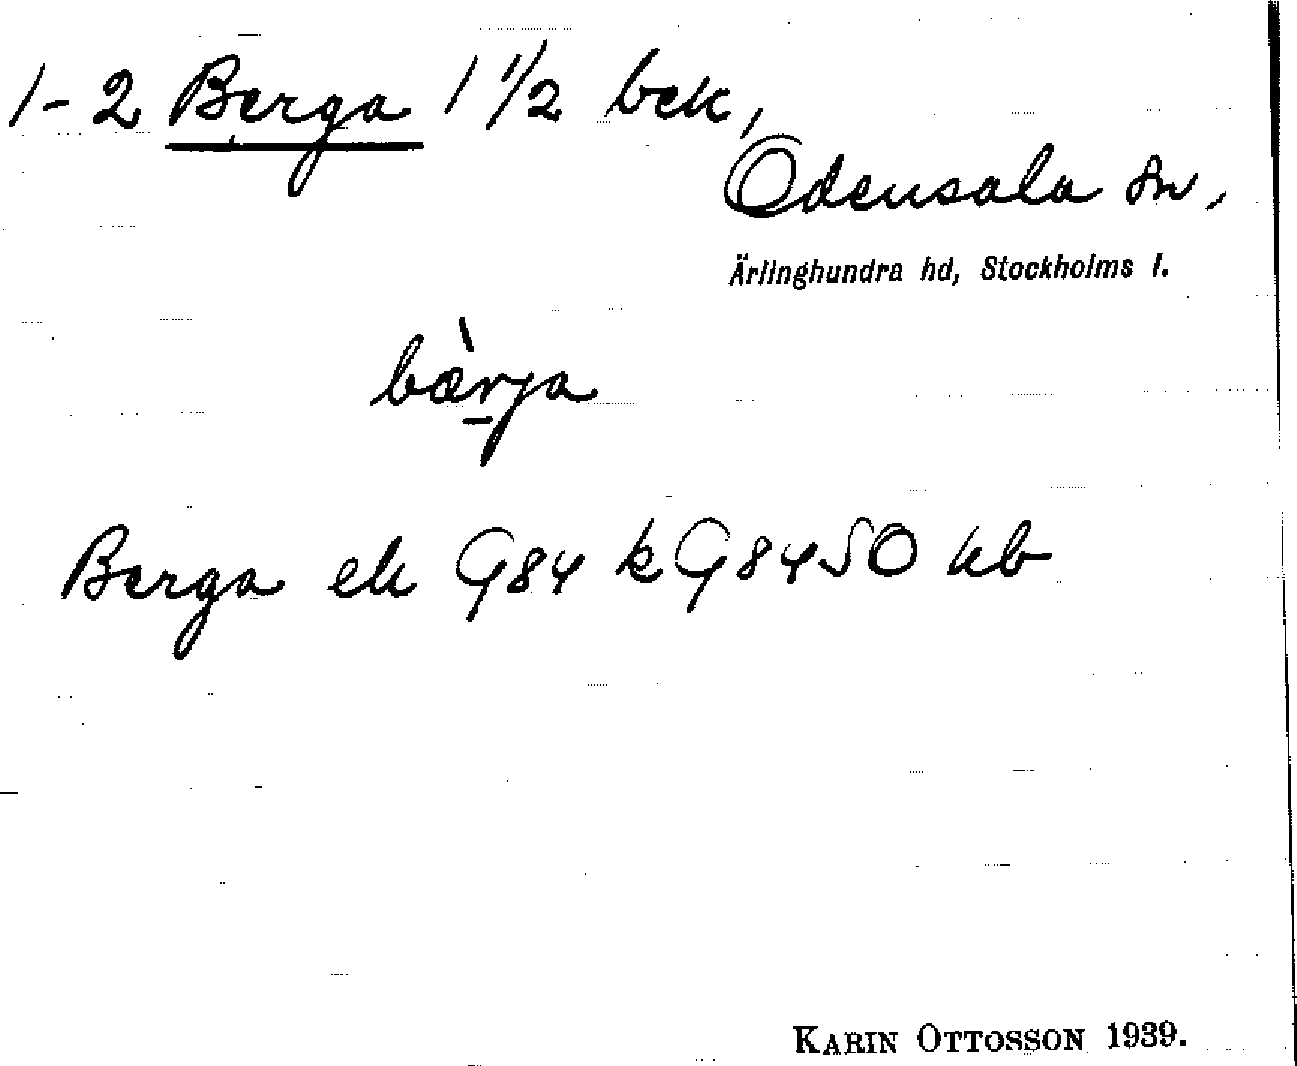 1-2 Berga 1 1/2 bek,
Odensala sn,
Ärlinghundra hd, Stockholms l.
bæ̀rja
Berga ek G84 k G8450 kb
KARIN OTTOSSON 1939.